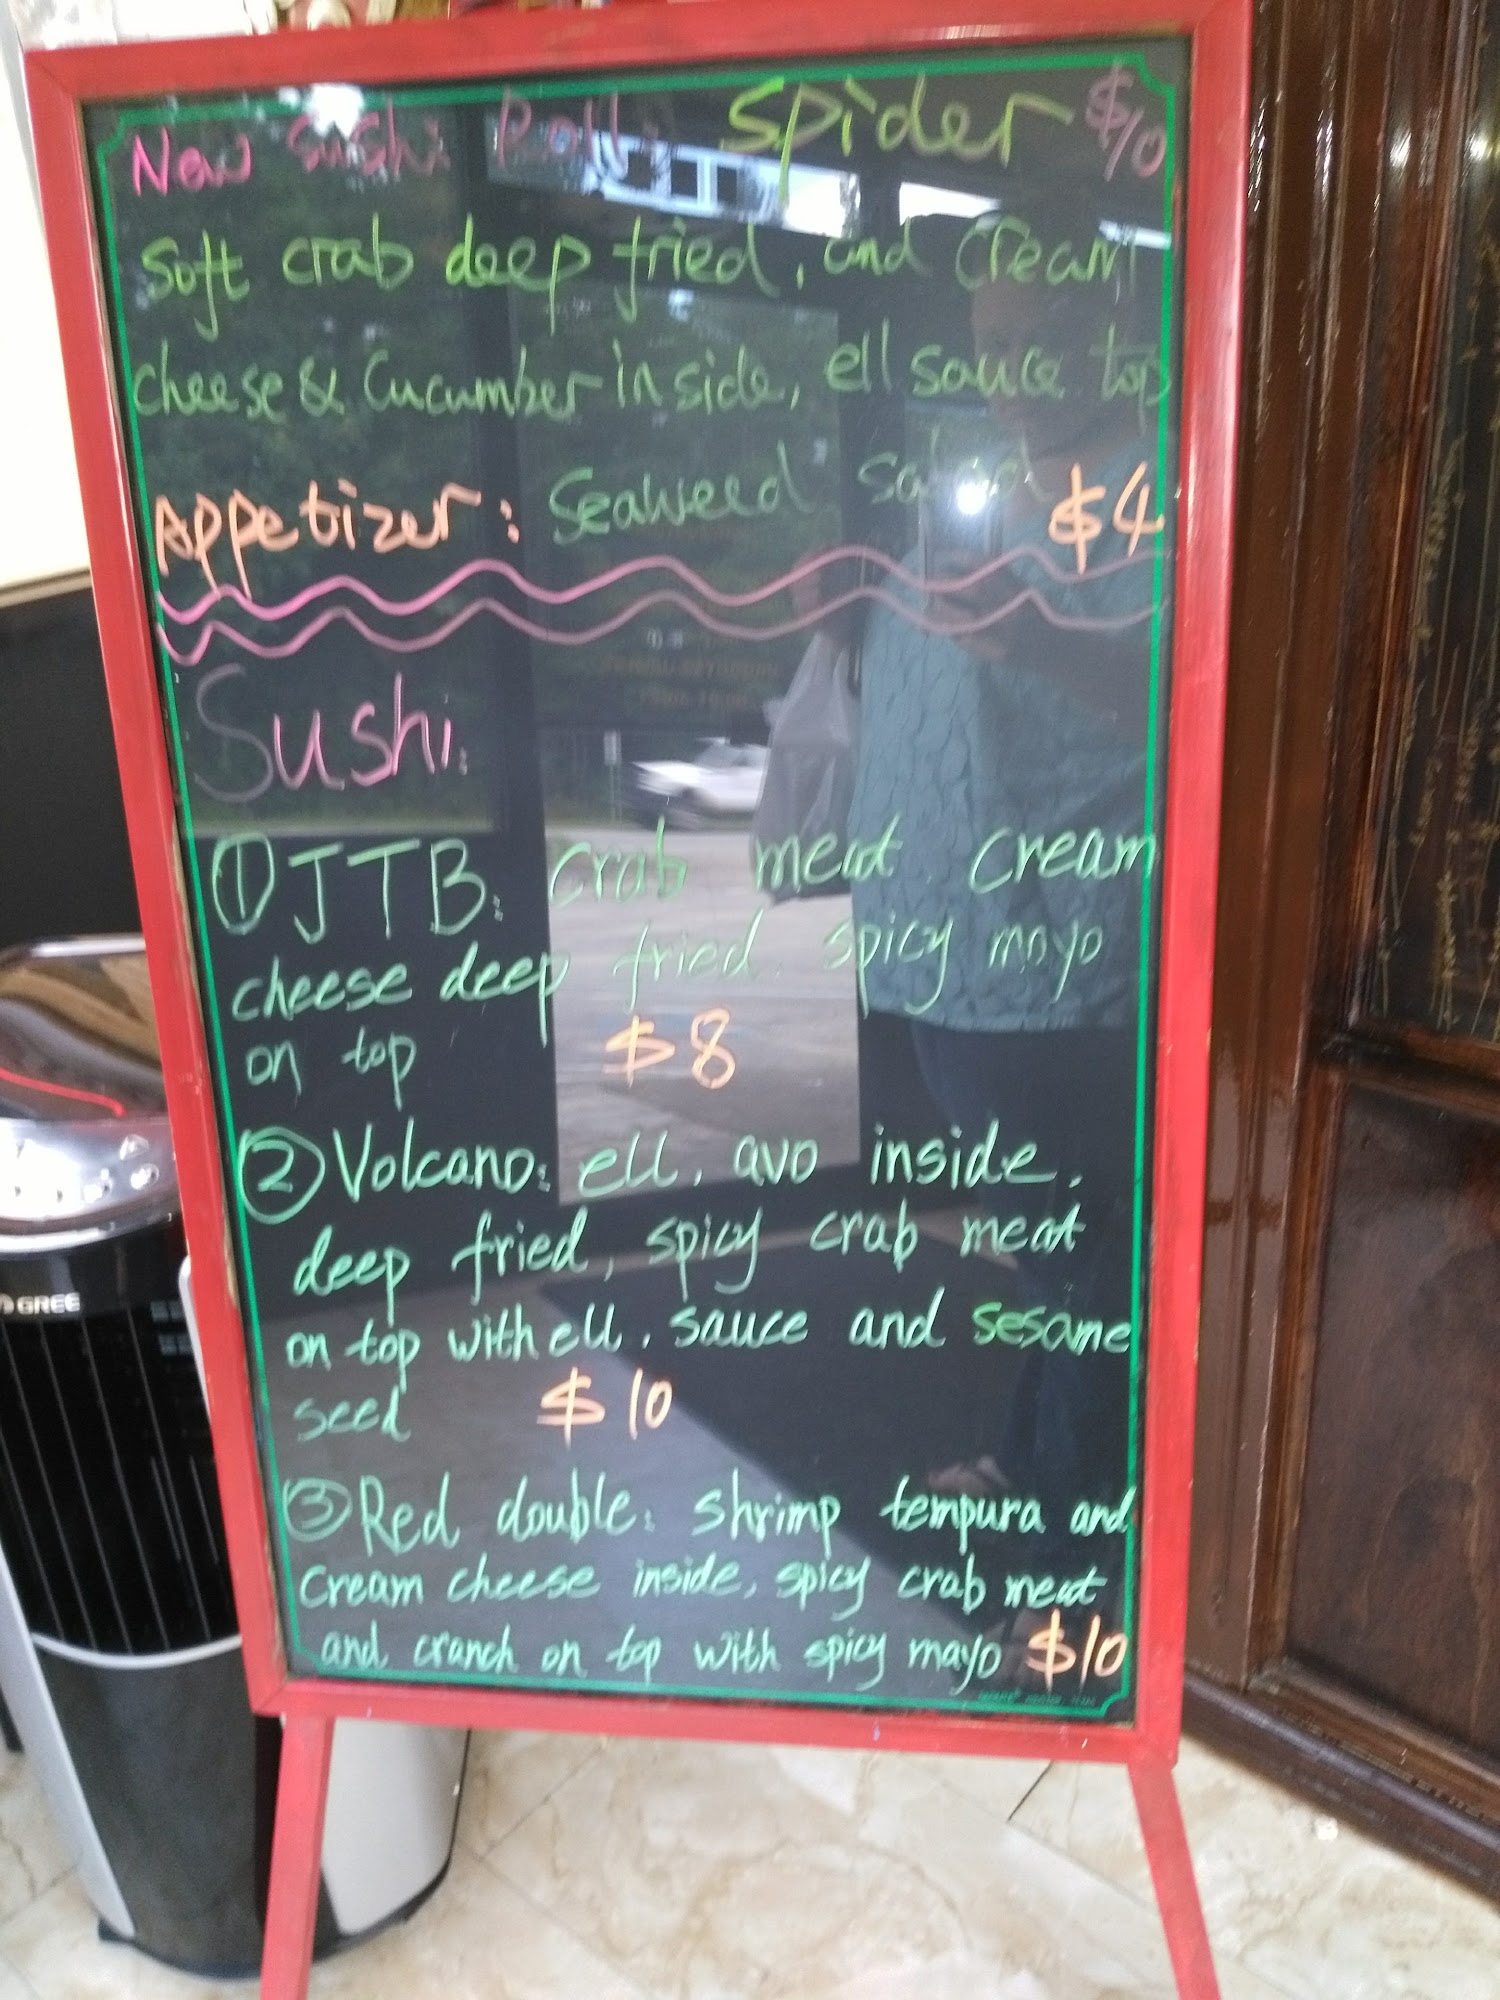 New Sushi Roll: Spider $10
Soft crab deep fried, and cream
cheese & Cucumber inside, ell sauce top
Appetizer: Seaweed salad $4
Sushi:
① JTB: crab meat, cream
cheese deep fried, spicy mayo
on top $8
② Volcano: ell, avo inside,
deep fried, spicy crab meat
on top with ell, sauce and sesame
seed $10
③ Red double: shrimp tempura and
cream cheese inside, spicy crab meat
and cranch on top with spicy mayo $10
GREE